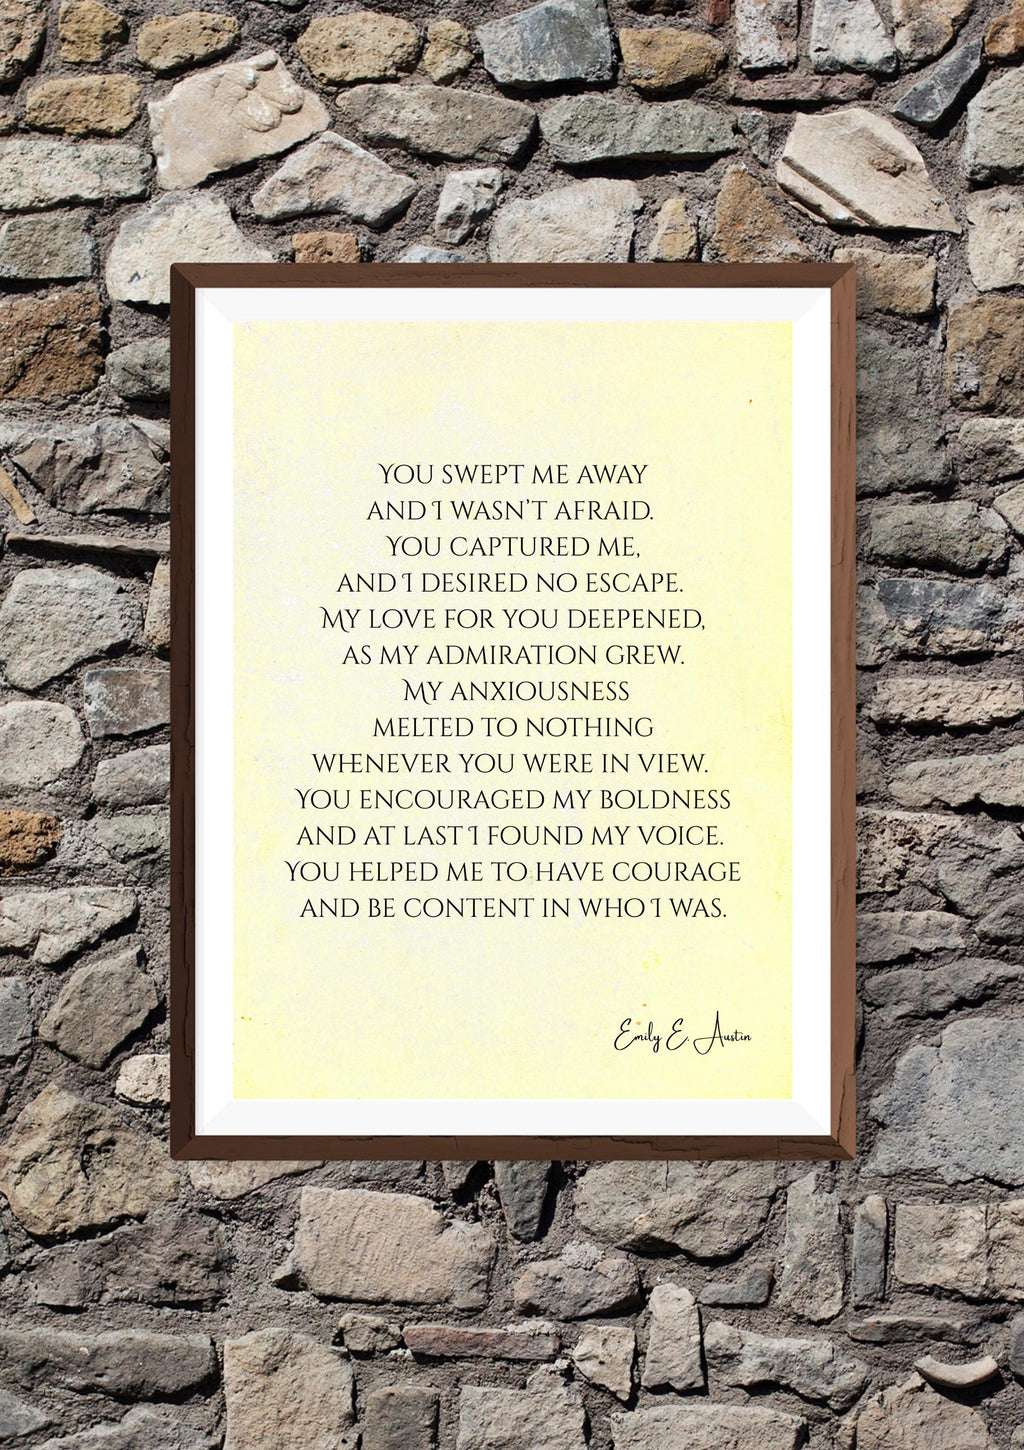 You swept me away
and I wasn't afraid.
You captured me,
and I desired no escape.
My love for you deepened,
as my admiration grew.
My anxiousness
melted to nothing
whenever you were in view.
You encouraged my boldness
and at last I found my voice.
You helped me to have courage
and be content in who I was.
Emily E. Austin